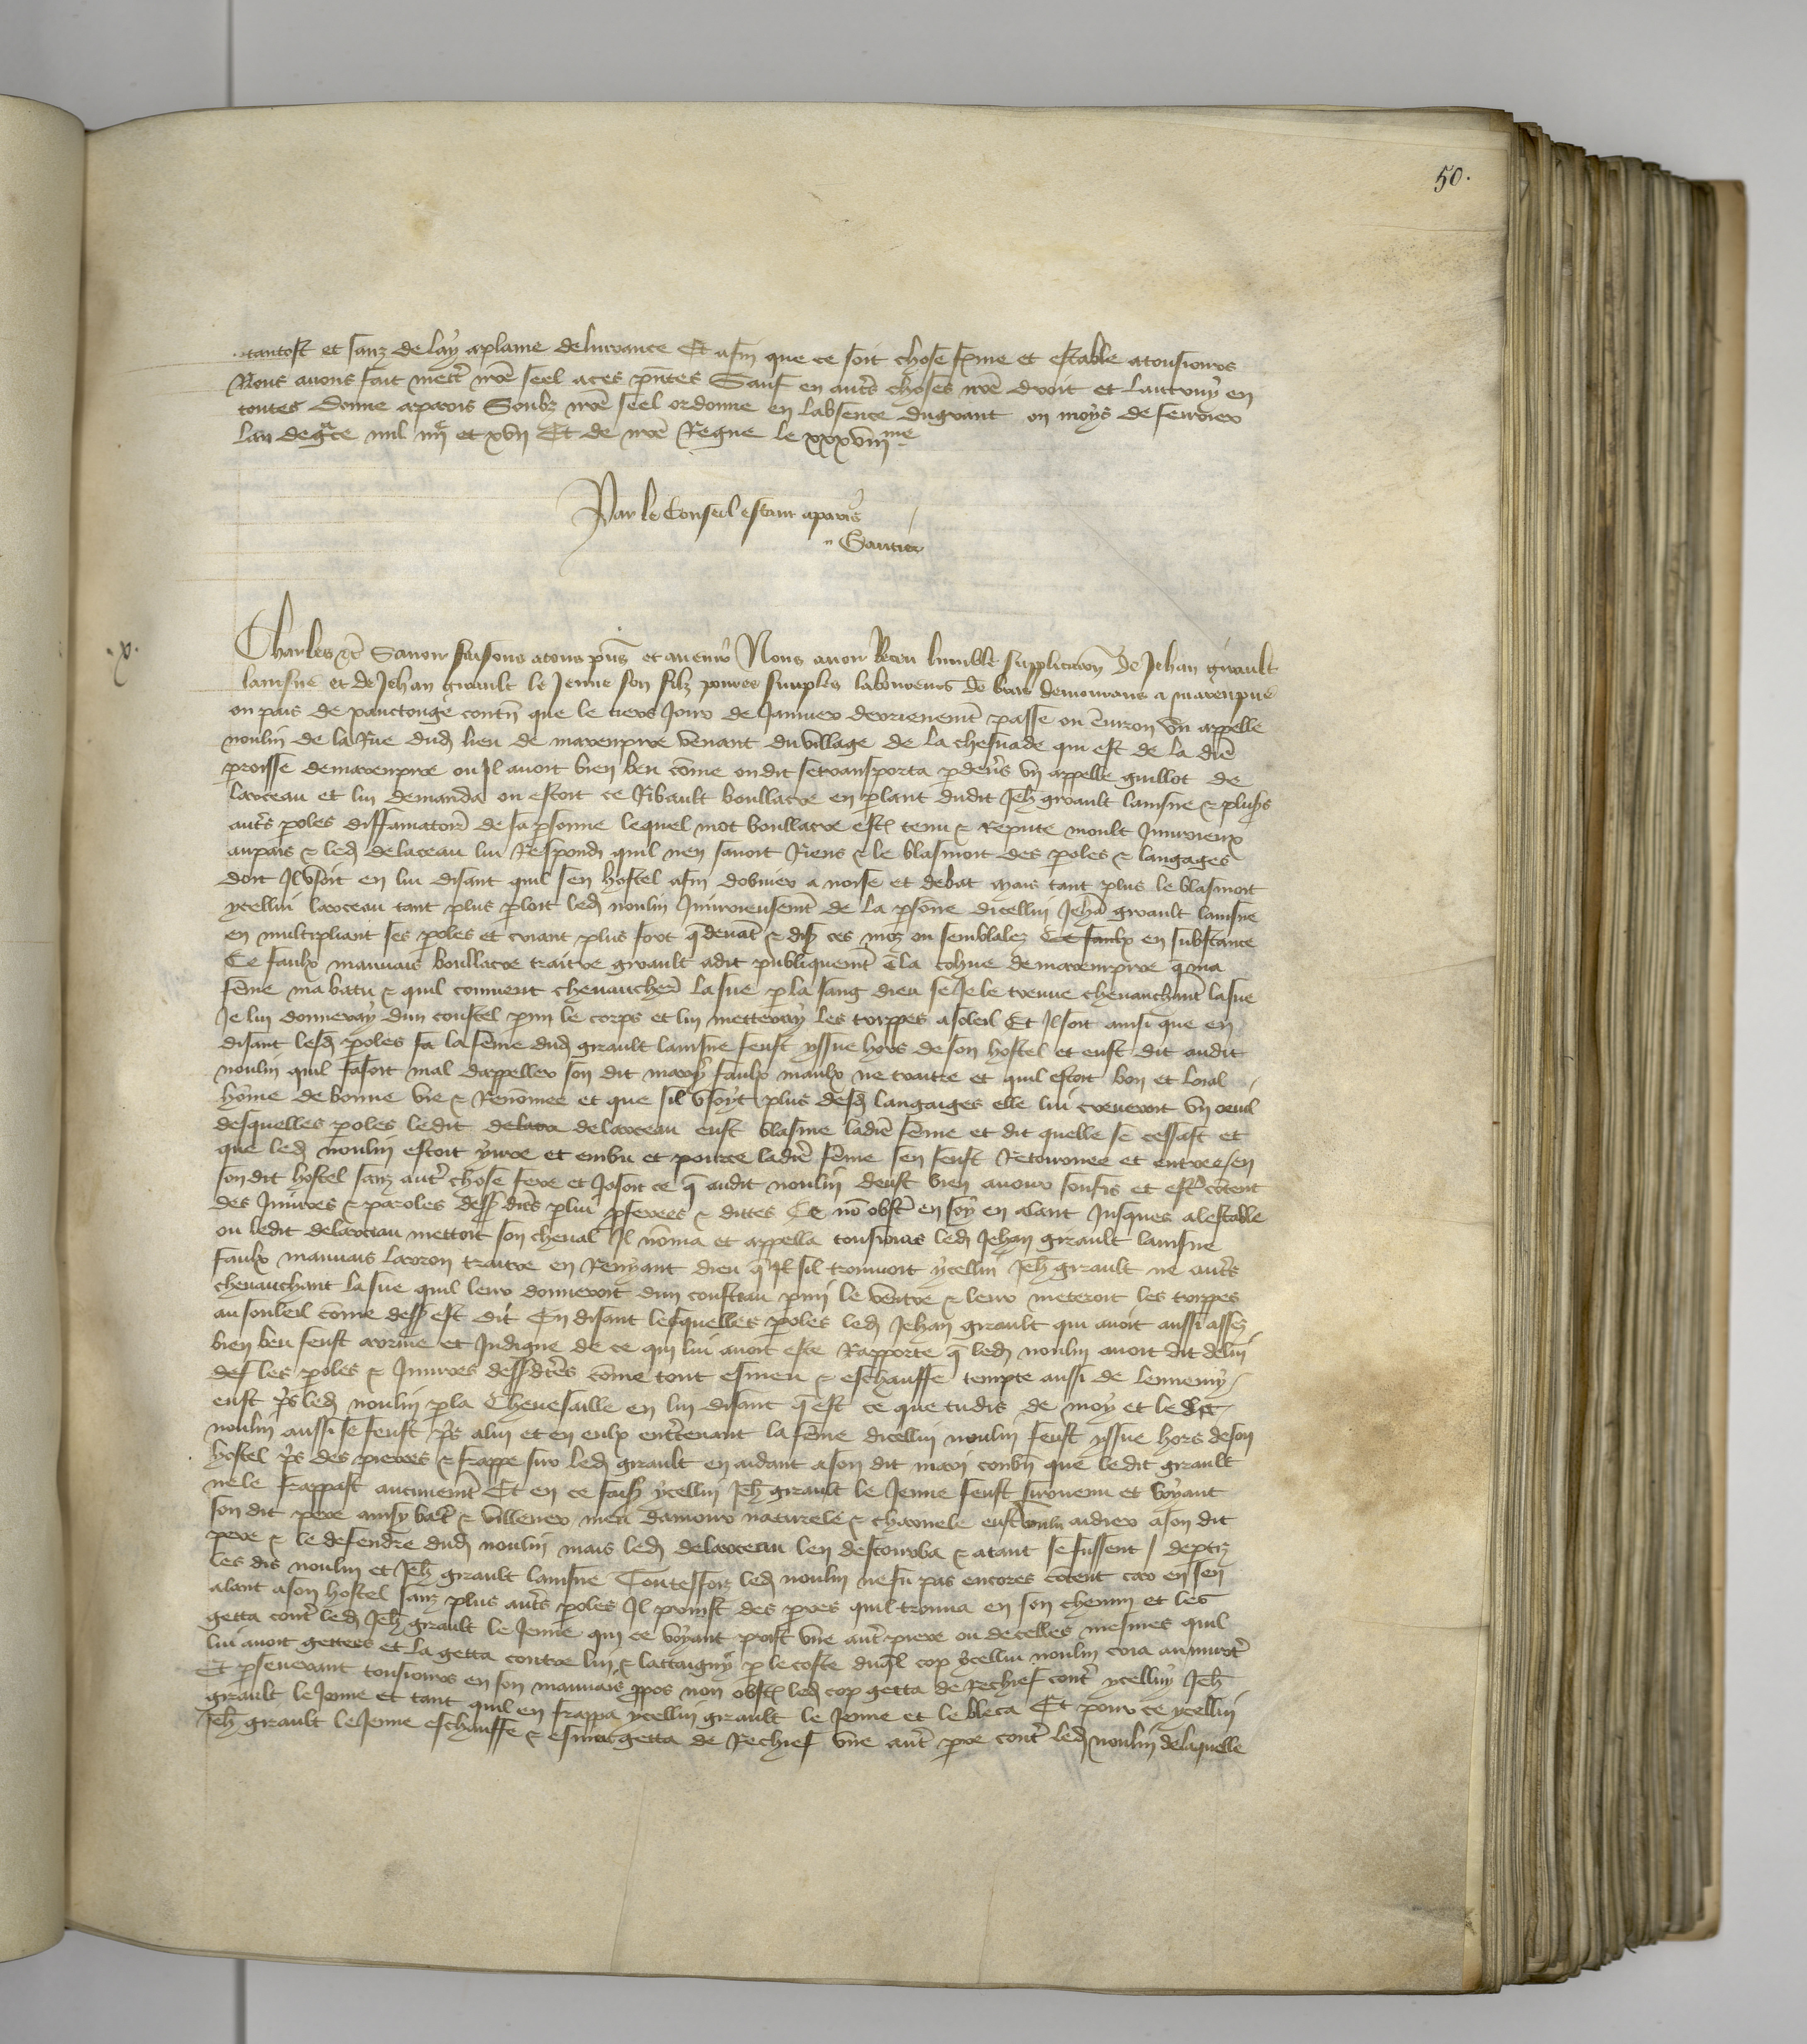 50.
tantost et sanz delay a plaine delivrance Et afin que ce soit chose ferme et estable a tousiours
Nous avons fait mettre nre seel a ces pntes Sauf en autres choses nre droit et lautruy en
toutes Donne a paris Soubz nre seel ordonne en labsence du grant ou moys de fevrier
lan de grace mil iiijc et xvij Et de nre Regne le xxxviijme
Par le Conseil estant a paris
Gautier
.x.
Charles etc Savoir faisons a tous pns et avenir Nous avoir Receu humble supplicacion De Jehan girault
lainsne et de Jehan girault le Jenne son filz povres simples laboureurs de bras demourans a
ou pais de xanctonge conten que le tiers Jour de Janvier derrienemt passe ou environ un appelle
noulin de la Rue dud lieu de venant du village de la chesnade qui est de la dite
proisse de ou Il avoit bien beu come on dit se transporta p devers un appelle guillot de
larceau et lui demanda ou estoit ce Ribault boullacre en plant dudit Jeh girault lainsne & plus
autres poles diffamatoires de sa psonne lequel mot boullacre est tenu & Repute moult Iniurieux
au pais & led delarceau lui Respondi quil nen savoit Riens & le blasmoit des poles & langages
dont Il usoit en lui disant quil sen hostel afin dobvier a noise et debat mais tant plus le blasmoit
ycellui larceau tant plus ploit led noulin Iniurieusemt de la psone dicellui Jeha girault lainsne
en multipliant ses poles et criant plus fort q devat & dist ces moz ou semblabes Ce faulx en substance
Ce faulx mauvais boullacre traitre girault a dit publiquemt e la cohue de q ma
feme ma batu & quil convient chevaucher lasne p la sang dieu se Je le treuve chevauchant lasne
Je lui donneray dun coustel pmi le corps et lui metteray les trippes a soleil Et Il soit ainsi que en
disant lesd poles la feme dud girault lainsne feust yssue hors de son hostel et eust dit audit
noulin quil fasoit mal dappeller son dit mary faulx maulx ne traitre et quil estoit bon et loial
home de bonne vie & Renomee et que sil usoyt plus desd langaiges elle lui creveroit un oeul
desquelles poles ledit delarceau eust blasme ladite feme et dit quelle se cessast et
que led noulin estoit yvre et embu et pource ladite feme sen feust Retournee et entree en
son dit hostel sanz autre chose fere et Jasoit ce q audit noulin deust bien avoir souffis et estre cotent
des Iniures & paroles dess dites p lui pferees & dittes Ce no obst en soy en alant Jusques a lestable
ou ledit delarceau mettoit son cheval Il noma et appella tousiours led Jehan girault lainsne
faulx mauvais larron traitre en Renyant dieu q sil trouvoit ycellui Jeh girault ne autres
chevauchant lasne quil leur donneroit dun cousteau pmi le ventre & leur meteroit les trippes
au souleil come dess est dit En disant lesquelles poles led Jehan girault qui avoit aussi assez
bien beu feust et Indigne de ce qui lui avoit este Rapporte q led noulin avoit dit de lui
les poles & Iniures dess dites come tout esmeu & eschauffe tempte aussi de lennemy
eust pris led noulin p la Chevesaille en lui disant q est ce que tu dis de moy et ledit
noulin aussi se feust pris a lui et en eulx entretenant la feme dicellui noulin feust yssue hors de son
hostel pris des pierres & frappe sur led girault en aidant a son dit mari conbn que ledit girault
ne le frappast aucunemt Et en ce fais ycellui Jeh girault le Jenne feust survenu et voyant
son dit pere ainsy batre & villener meu damour naturele & charnele eust voulu aidier a son dit
pere & le defendre dud noulin mais led delarceau len destourba & atant se fussent deptiz
les dis noulin et Jeh girault lainsne Toutesfoiz led noulin ne fu pas encores cotent car en sen
alant a son hostel sanz plus autres poles Il prinst des pres quil trouva en son chemin et les
getta contre led Jeh girault le Jenne qui ce voyant prist une autre piere ou de celles mesmes quil
lui avoit gettees et la getta contre lui & lattaigny p le coste duql cop ycellui noulin cria au murtre
Et pseverant tousiours en son mauvais ppos non obst led cop getta de Rechief contre ycelluy Jeh
girault le Jenne et tant quil en frappa ycellui girault le Jenne et le bleca Et pour ce ycellui
Jeh girault le Jenne eschauffe & esmeu getta de Rechief une autre pre contre led noulin de laquelle